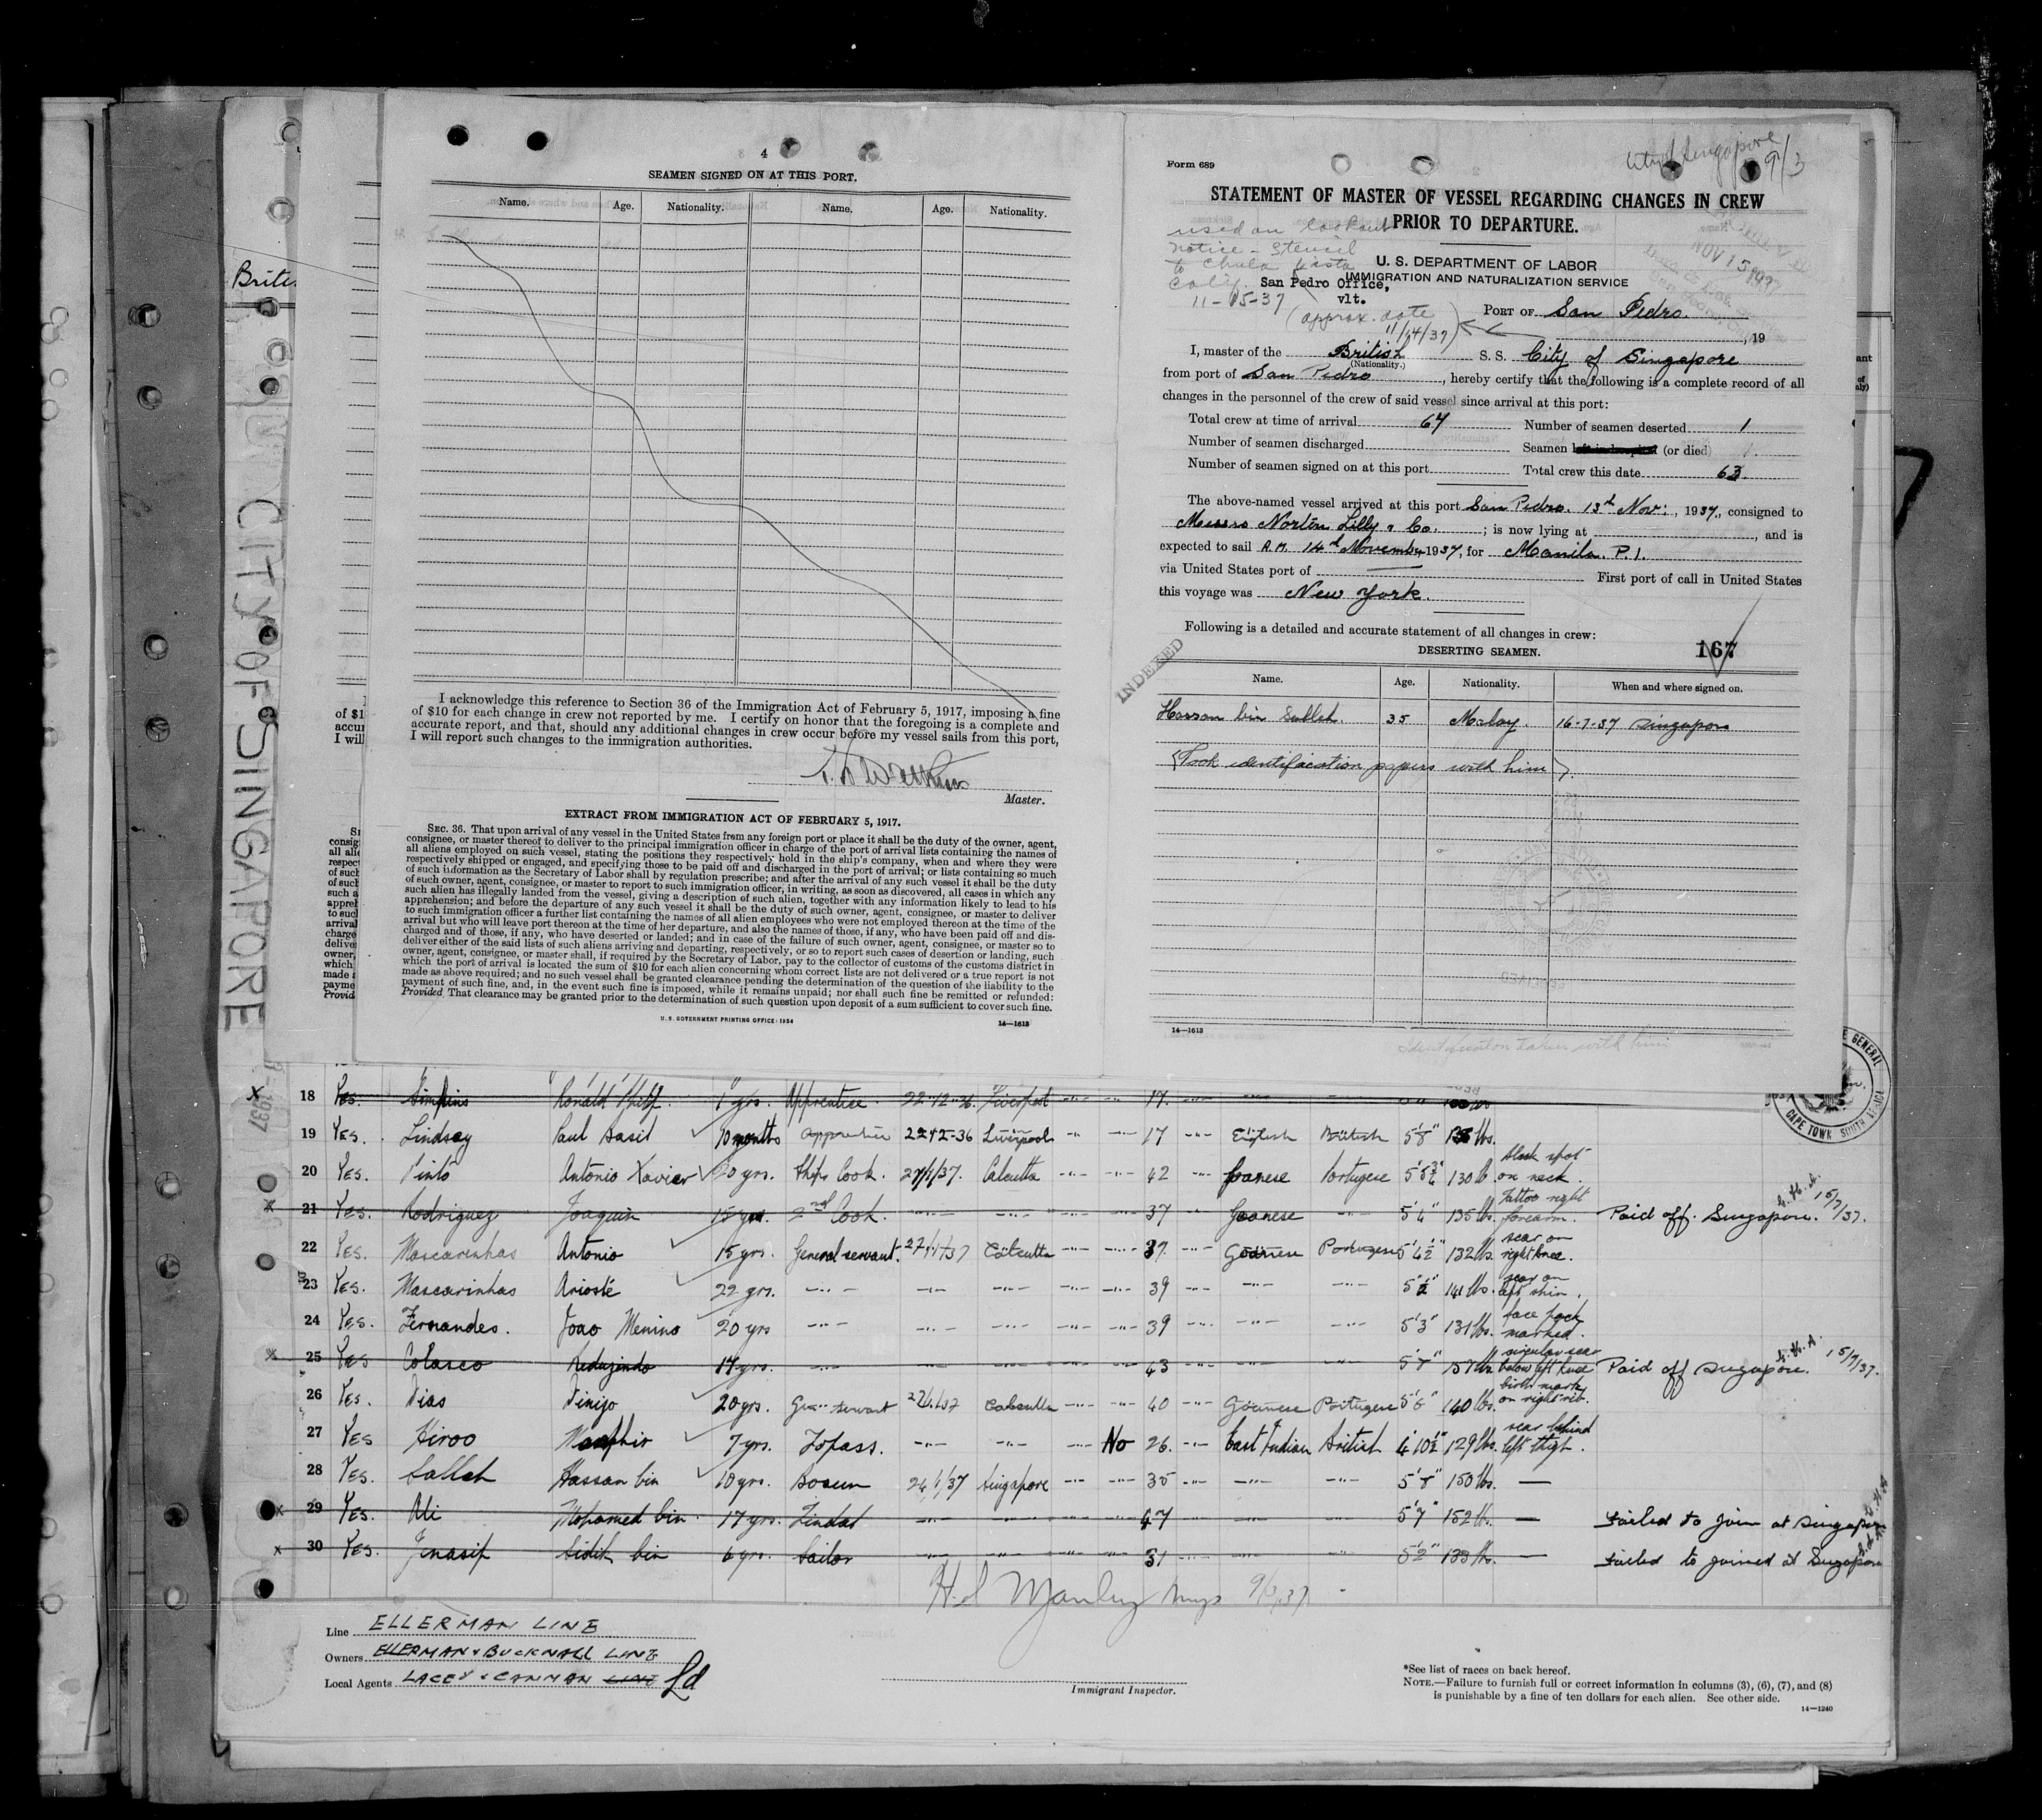 4
SEAMEN SIGNED ON AT THIS PORT.
Name. Age. Nationality. Name. Age. Nationality.
I acknowledge this reference to Section 36 of the Immigration Act of February 5, 1917, imposing a fine
of $10 for each change in crew not reported by me. I certify on honor that the foregoing is a complete and
accurate report, and that, should any additional changes in crew occur before my vessel sails from this port,
I will report such changes to the immigration authorities.
Master.
EXTRACT FROM IMMIGRATION ACT OF FEBRUARY 5, 1917.
SEC. 36. That upon arrival of any vessel in the United States from any foreign port or place it shall be the duty of the owner, agent,
consignee, or master thereof to deliver to the principal immigration officer in charge of the port of arrival lists containing the names of
all aliens employed on such vessel, stating the positions they respectively hold in the ship's company, when and where they were
respectively shipped or engaged, and specifying those to be paid off and discharged in the port of arrival; or lists containing so much
of such information as the Secretary of Labor shall by regulation prescribe; and after the arrival of any such vessel it shall be the duty
of such owner, agent, consignee, or master to report to such immigration officer, in writing, as soon as discovered, all cases in which any
such alien has illegally landed from the vessel, giving a description of such alien, together with any information likely to lead to his
apprehension; and before the departure of any such vessel it shall be the duty of such owner, agent, consignee, or master to deliver
to such immigration officer a further list containing the names of all alien employees who were not employed thereon at the time of the
arrival but who will leave port thereon at the time of her departure, and also the names of those, if any, who have been paid off and dis-
charged and of those, if any, who have deserted or landed; and in case of the failure of such owner, agent, consignee, or master so to
deliver either of the said lists of such aliens arriving and departing, respectively, or so to report such cases of desertion or landing, such
owner, agent, consignee, or master shall, if required by the Secretary of Labor, pay to the collector of customs of the customs district in
which the port of arrival is located the sum of $10 for each alien concerning whom correct lists are not delivered or a true report is not
made as above required; and no such vessel shall be granted clearance pending the determination of the question of the liability to the
payment of such fine, and, in the event such fine is imposed, while it remains unpaid; nor shall such fine be remitted or refunded:
Provided, That clearance may be granted prior to the determination of such question upon deposit of a sum sufficient to cover such fine.
U. S. GOVERNMENT PRINTING OFFICE: 1934 14—1613
CITY OF SINGAPORE
Form 689
City of Singapore 9/3
STATEMENT OF MASTER OF VESSEL REGARDING CHANGES IN CREW
PRIOR TO DEPARTURE.
used on lookout
notice - stencil
to Chula Vista
Calif.
11-15-37
U. S. DEPARTMENT OF LABOR
IMMIGRATION AND NATURALIZATION SERVICE
San Pedro Office,
vlt.
NOV 15 1937
(approx. date
11/14/37)
PORT OF San Pedro.
, 19
I, master of the British S. S. City of Singapore
(Nationality.)
from port of San Pedro, hereby certify that the following is a complete record of all
changes in the personnel of the crew of said vessel since arrival at this port:
Total crew at time of arrival 64 Number of seamen deserted 1
Number of seamen discharged Seamen left in hospital (or died) 1.
Number of seamen signed on at this port Total crew this date 63.
The above-named vessel arrived at this port San Pedro. 13th Nov:, 1937, consigned to
Messrs Norton Lilly & Co.; is now lying at , and is
expected to sail A.M. 14th November 1937, for Manila. P.I.
via United States port of First port of call in United States
this voyage was New York.
Following is a detailed and accurate statement of all changes in crew:
INDEXED
DESERTING SEAMEN. 167
Name. Age. Nationality. When and where signed on.
Hassan bin Salleh. 35 Malay. 16-7-37 Singapore
(Took identification papers with him).
14—1613
Identification taken with him
18 Yes. Simpkins Ronald Philip. 1 yrs. Apprentice. 22-12-36. Liverpool 17.
19 Yes. Lindsay Paul Basil 10 months apprentice 22-12-36 Liverpool 17 English British 5'8" lbs.
20 Yes. Pinto Antonio Xavier 20 yrs. Ships Cook. 27/1/37. Calcutta 42 Goanese Portugese 130 lb. black spot on neck.
21 Yes. Rodriguez Joaquin 15 yrs. 2nd Cook. 37 Goanese 5'4" 135 lbs. Tattoo right forearm. Paid off. Singapore. 15/7/37.
22 Yes. Mascarinhas Antonio 15 yrs. General servant. 27/1/37 Calcutta 37. Goanese Portugese 5'4½" 132 lbs. scar on right knee.
23 Yes. Mascarinhas Arioste 22 yrs. 39 141 lbs. scar on left shin.
24 Yes. Fernandes. Joao Menino 20 yrs 39 5'3" 131 lbs. face pock marked.
25 Yes Colasco Reduzindo 14 yrs. 43 157 lbs. circular scar below left knee Paid off Singapore. 15/7/37.
26 Yes. Dias Vinijo 20 yrs. Gen servant 27/1/37 Calcutta 40 Goanese Portugese 5'6" 140 lbs. birth mark on right rib.
27 Yes Hiroo 7 yrs. Topass. No 26. East Indian British 4'10½" 129 lbs. scar behind left thigh.
28 Yes. Salleh Hassan bin 10 yrs. Bosun 24/1/37 Singapore 35 5'8" 150 lbs. —
29 Yes. Ali Mohamed bin 17 yrs. Tindal 47 5'7" 152 lbs. — Failed to join at Singapore
30 Yes. Jenasip Sidik bin 6 yrs. Sailor 31 5'2" 133 lb. — Failed to joined at Singapore
9/3/37
Line ELLERMAN LINE
Owners ELLERMAN & BUCKNALL LINE
Local Agents LACEY & CANNAN LINE Ld
Immigrant Inspector.
*See list of races on back hereof.
NOTE.—Failure to furnish full or correct information in columns (3), (6), (7), and (8)
is punishable by a fine of ten dollars for each alien. See other side.
14—1240
GENERAL
CAPE TOWN SOUTH AFRICA